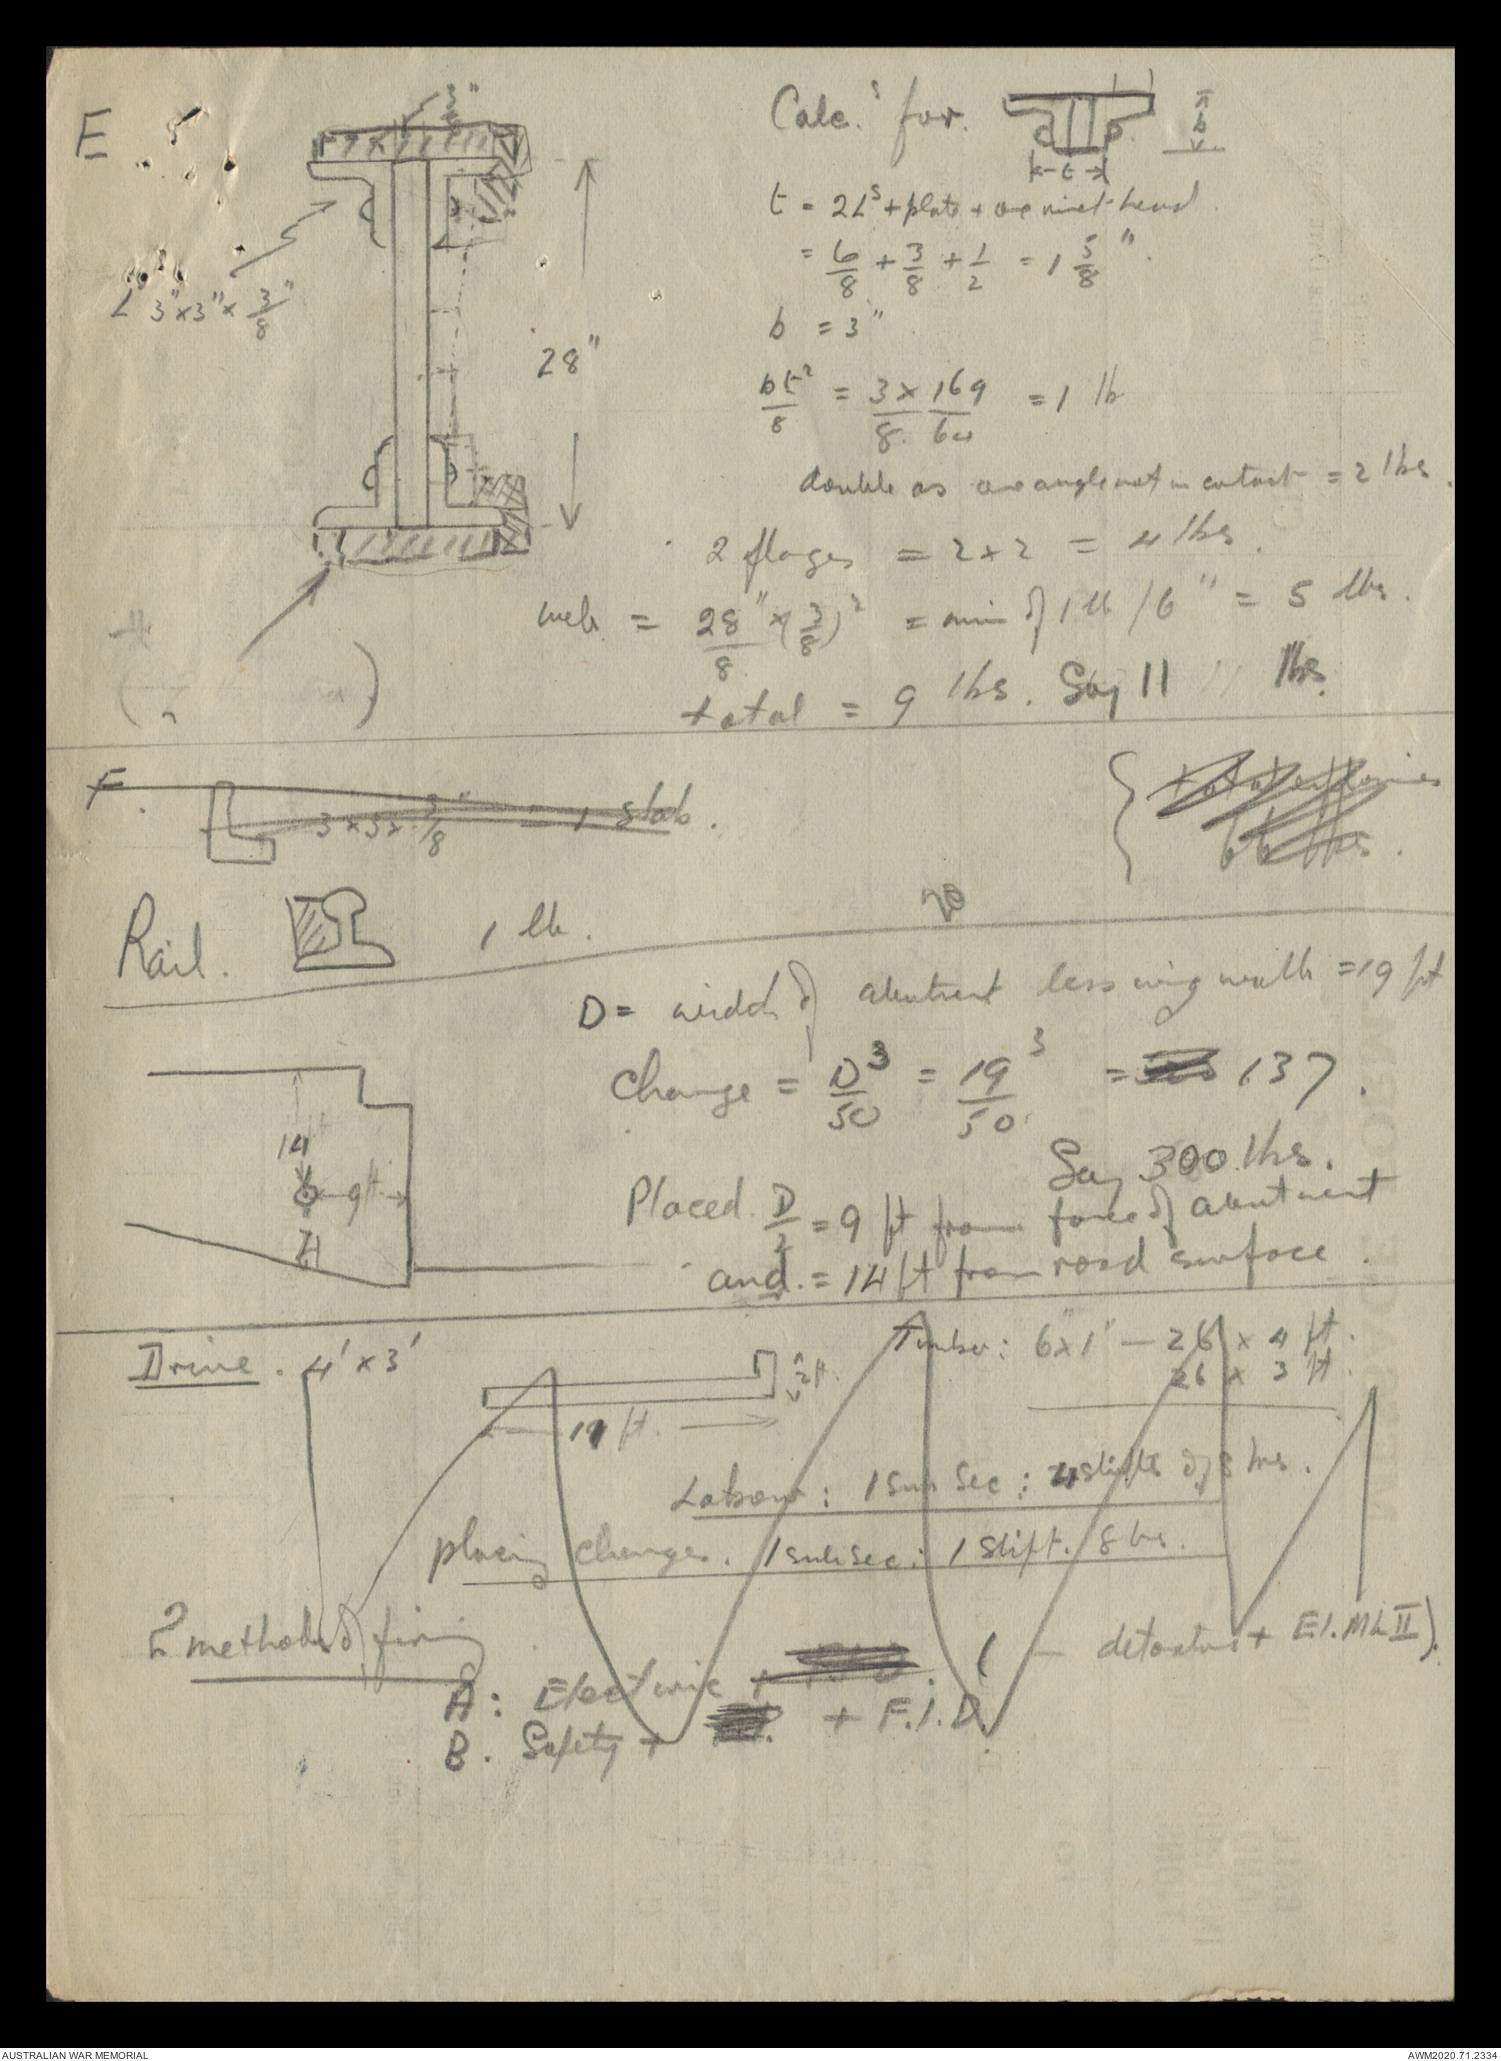 E
3/8"
L 3"x3"x 3/8"
28"
Calc.s for.
b
t
t = 2Ls + plate + one rivet head.
= 6/8 + 3/8 + 1/2 = 1 5/8".
b = 3"
bt²/8 = 3 x 169 / 8. 64 = 1 lb
double as one angle not in contact = 2 lbs.
2 flanges = 2 x 2 = 4 lbs.
web = 28" x (3/8)² / 8 = min of 1 lb / 6" = 5 lbs.
total = 9 lbs. Say 11 lbs.
F.
3 x 3 x 3/8" = 1 slab.
66 lbs.
Rail.
1 lb.
D = width of abutment less wing walls = 19 ft
Charge = D³/50 = 19³/50 = 137.
Say 300 lbs.
14
9 ft
Placed D/2 = 9 ft from face of abutment
and = 14 ft from road surface.
Drive. 4' x 3'
2 ft.
19 ft.
Timber: 6" x 1" — 26 x 4 ft.
26 x 3 ft.
Labour: 1 sub sec: 4 shifts of 8 hrs.
placing charges. 1 sub sec: 1 shift. 8 hrs.
2 methods of firing
A: Electric + ( — detonators + E1. Mk II).
B. Safety + + F.I.D.
AUSTRALIAN WAR MEMORIAL
AWM2020.71.2334